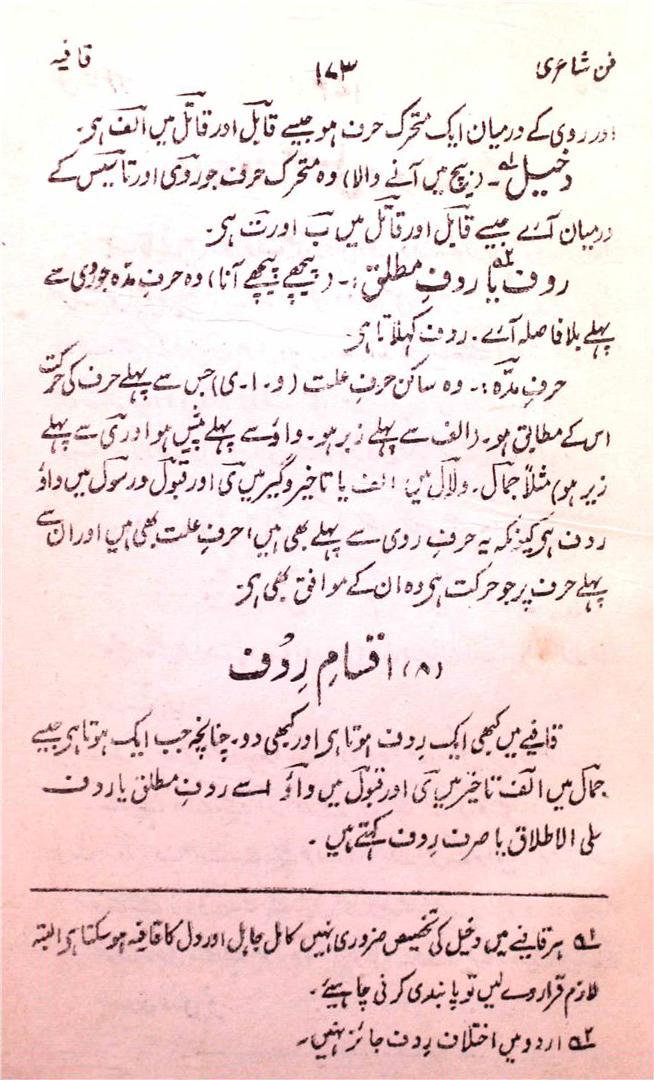 فن شاعری ۱۷۳ قافیہ
اور روی کے درمیان ایک متحرک حرف ہو جیسے قابل اور قاتل میں الف ہی۔
دخیل۱؎۔ (بیچ میں آنے والا) وہ متحرک حرف جو روی اور تاسیس کے
درمیان آے جیسے قابل اور قاتل میں ب اور ت ہی۔
روف۲؎ یا روفِ مطلق :۔ (پیچھے پیچھے آنا) وہ حرفِ مدّہ جو روی سے
پہلے بلا فاصلہ آے۔ ردف کہلاتا ہی۔
حرفِ مدّہ :۔ وہ ساکن حرفِ علت (و۔ا۔ی) جس سے پہلے حرف کی حرکت
اس کے مطابق ہو۔ (الف سے پہلے زبر ہو۔ واؤ سے پہلے پیش ہو اور ی سے پہلے
زیر ہو) مثلاً جمال۔ ولال میں الف یا تاخیر وگیر میں ی اور قبول ورسول میں واؤ
ردف ہی کیونکہ یہ حرف روی سے پہلے بھی ہیں، حرفِ علت بھی ہیں اور ان سے
پہلے حرف پر جو حرکت ہی وہ ان کے موافق بھی ہی۔
(۸) اقسامِ رِدُف
قافیے میں کبھی ایک رِدف ہوتا ہی اور کبھی دو۔ چنانچہ جب ایک ہوتا ہی جیسے
جمال میں الف تاخیر میں ی اور قبول میں واؤ اسے ردفِ مطلق یا ردف
علی الاطلاق یا صرف رِدف کہتے ہیں۔
۱؎ ہر قافیے میں دخیل کی تخصیص ضروری نہیں کامل جاہل اور دل کا قافیہ ہو سکتا ہی البتہ
لازم قرار دے لیں تو پابندی کرنی چاہیئے۔
۲؎ اردو میں اختلاف رِدف جائز نہیں۔